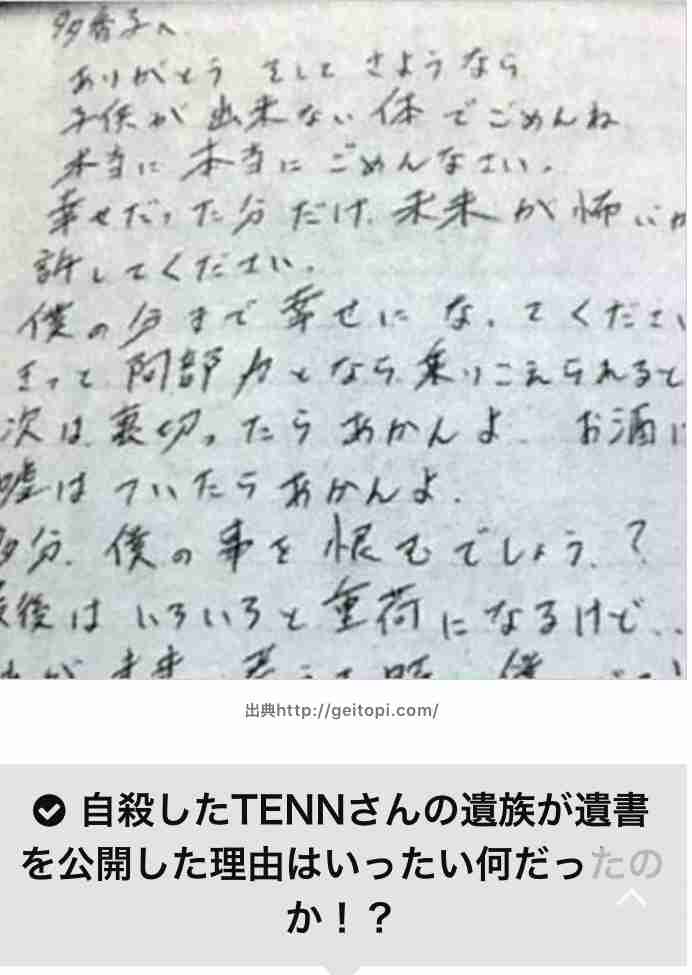 多香子へ
ありがとう そして さようなら
子供が出来ない体でごめんね
本当に本当にごめんなさい。
幸せだった分だけ、未来が怖いか
許してください。
僕の分まで幸せになってくださ
きっと 阿部力となら乗りこえられると
次は裏切ったらあかんよ お酒
嘘はついたらあかんよ。
多分、僕の事を恨むでしょう?
最後はいろいろと重荷になるけど..
出典http://geitopi.com/
自殺したTENNさんの遺族が遺書
を公開した理由はいったい何だったの
か!?